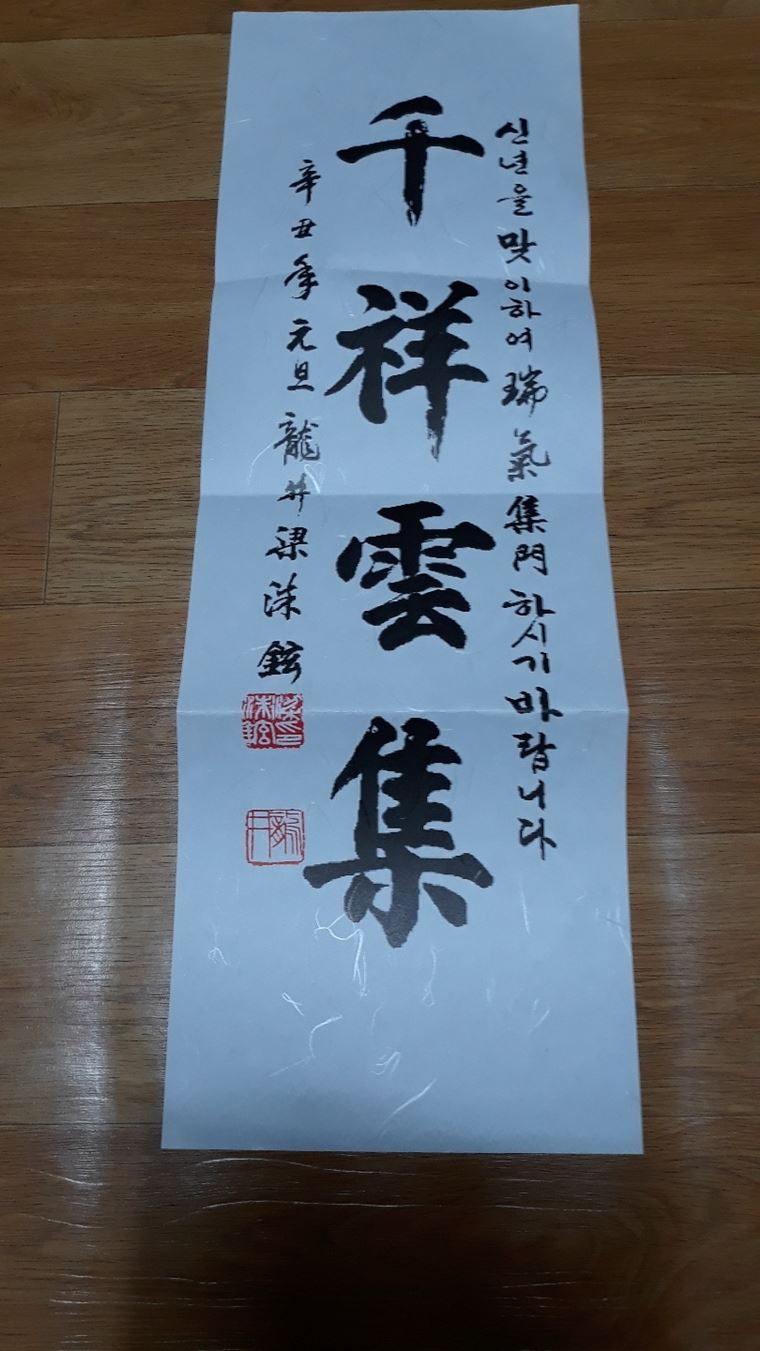 신년을 맞이하여 瑞氣集門 하시기 바랍니다
千祥雲集
辛丑年 元旦 龍井 梁洙鉉